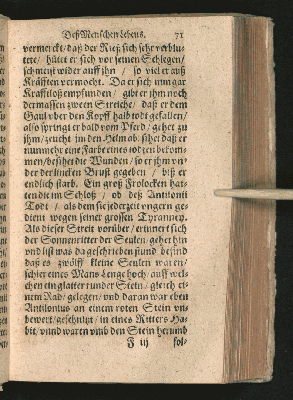 Deß Menschen Lebens. 71
vermerckt/ daß der Rieß sich sehr verblu-
tete/ hütet er sich vor seinen Schlegen/
schmeist wider auff ihn / so viel er auß
Kräfften vermocht. Da er sich nun gar
Krafftloß empfunden / gibt er ihm noch
dermassen zween Streiche / daß er dem
Gaul vber den Kopff halb todt gefallen/
also springt er bald vom Pferd / gehet zu
ihm/ zeucht im den Helm ab/ sihet daß er
nunmehr eine Farbe eines todten bekom-
men/ besihet die Wunden / so er ihm vn-
der der lincken Brust gegeben / biß er
endlich starb. Ein groß Frolocken hat-
ten die im Schloß / ob deß Antilonij
Todt / als dem sie jederzeit vngern ge-
dient wegen seiner grossen Tyranney.
Als dieser Streit vorüber / erinnert sich
der Sonnenritter der Seulen/ gehet hin
vnd list was da geschrieben stund/ befind
daß es zwölff kleine Seulen waren/
schier eines Mans Lenge hoch/ auff wel-
chen ein glatter runder Stein / gleich ei-
nem Rad/ gelegen/ vnd daran war eben
Antilonius an einem roten Stein vn-
bewert/ geschnitzt / in eines Ritters Ha-
bit/ vnnd waren vmb den Stein herumb
F iij fol-